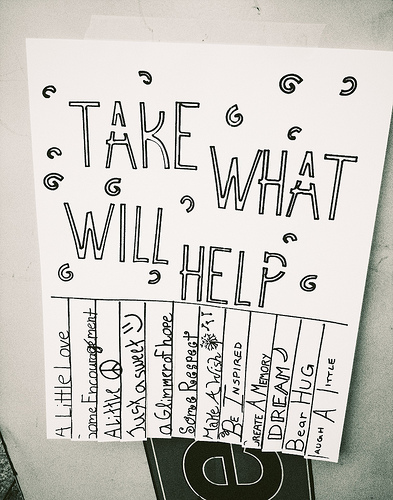 TAKE
WHAT
WILL
HELP
A Little Love
Some Encouragement
A little ☮
Just a sweet =)
a Glimmer of hope
Some Respect
Make A Wish
Be INSPIRED
CREATE A MEMORY
DREAM
Bear HUG
LAUGH A LITTLE
e